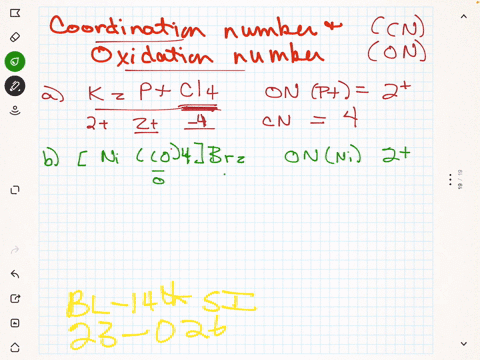 Coordination number & (CN)
Oxidation number (ON)
a) K2 Pt Cl4 ON (Pt) = 2+
2+ 2+ -4 CN = 4
b) [ Ni (CO)4] Br2 ON (Ni) 2+
0
BL-14th SI
23-026
19 / 19